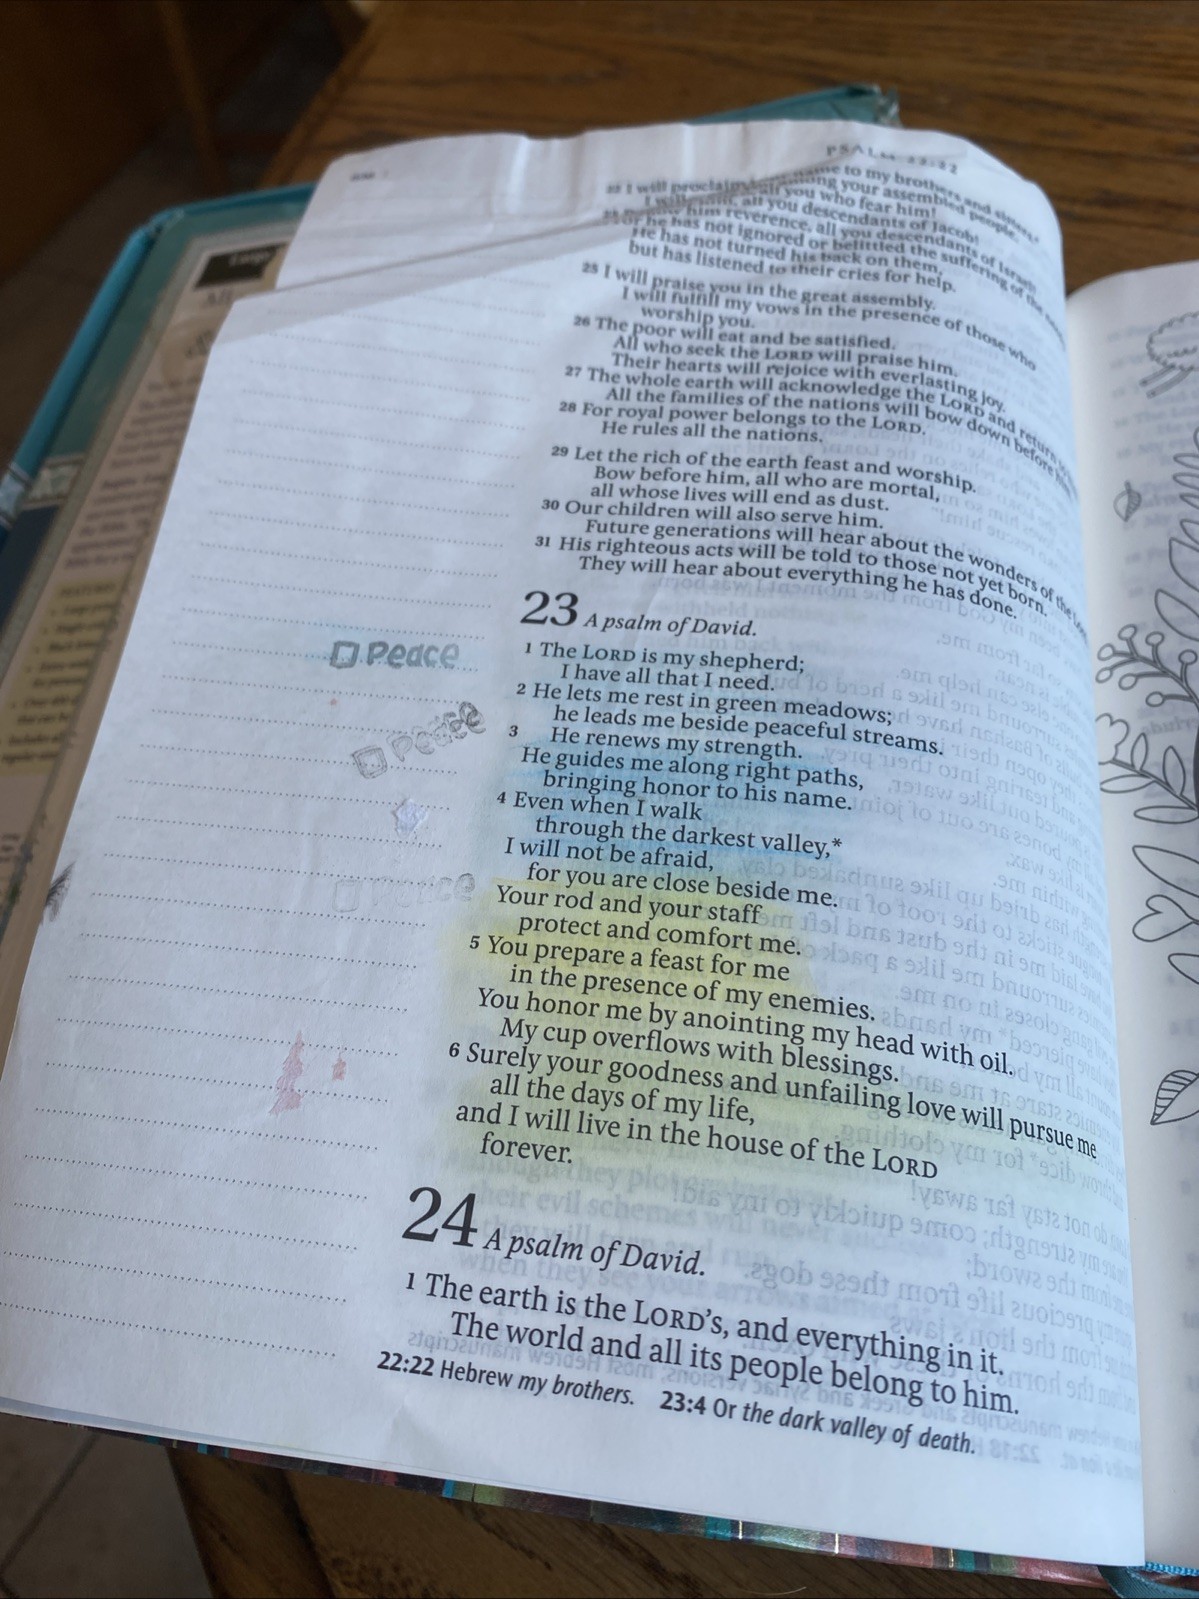 PSALM 22:22
name to my brothers and sisters.
I will among your assembled people.
all you who fear him!
all you descendants of Jacob!
him reverence, all you descendants of Israel!
he has not ignored or belittled the suffering of the
He has not turned his back on them,
but has listened to their cries for help.
25 I will praise you in the great assembly.
I will fulfill my vows in the presence of those who
worship you.
26 The poor will eat and be satisfied.
All who seek the LORD will praise him.
Their hearts will rejoice with everlasting joy.
27 The whole earth will acknowledge the LORD and return
All the families of the nations will bow down before him
28 For royal power belongs to the LORD.
He rules all the nations.
29 Let the rich of the earth feast and worship.
Bow before him, all who are mortal,
all whose lives will end as dust.
30 Our children will also serve him.
Future generations will hear about the wonders of the
31 His righteous acts will be told to those not yet born.
They will hear about everything he has done.
23 A psalm of David.
1 The LORD is my shepherd;
I have all that I need.
2 He lets me rest in green meadows;
he leads me beside peaceful streams.
3 He renews my strength.
He guides me along right paths,
bringing honor to his name.
4 Even when I walk
through the darkest valley,*
I will not be afraid,
for you are close beside me.
Your rod and your staff
protect and comfort me.
5 You prepare a feast for me
in the presence of my enemies.
You honor me by anointing my head with oil.
My cup overflows with blessings.
6 Surely your goodness and unfailing love will pursue me
all the days of my life,
and I will live in the house of the LORD
forever.
24 A psalm of David.
1 The earth is the LORD's, and everything in it.
The world and all its people belong to him.
22:22 Hebrew my brothers. 23:4 Or the dark valley of death.
Peace
Peace
Peace